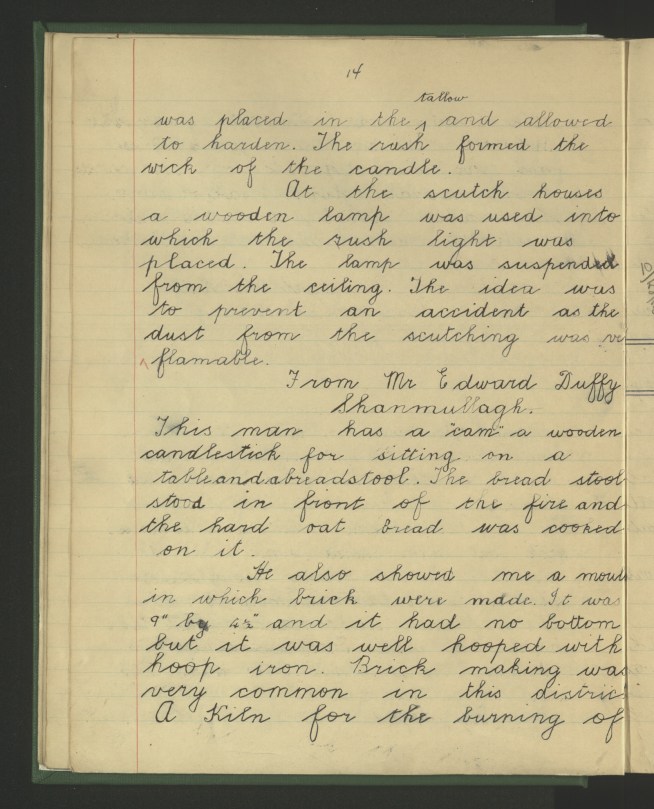 14
tallow
was placed in the , and allowed
to harden. The rush formed the
wick of the candle.
At the scutch houses
a wooden lamp was used into
which the rush light was
placed. The lamp was suspended
from the ceiling. The idea was
to prevent an accident as the
dust from the scutching was ve
flamable.
From Mr Edward Duffy
Shanmullagh.
This man has a "cam" a wooden
candlestick for sitting on a
table and a breadstool. The bread stool
stood in front of the fire and
the hard oat bread was cooked
on it.
He also showed me a moul
in which brick were made. It was
9" by 4½" and it had no bottom
but it was well hooped with
hoop iron. Brick making was
very common in this distric
A Kiln for the burning of